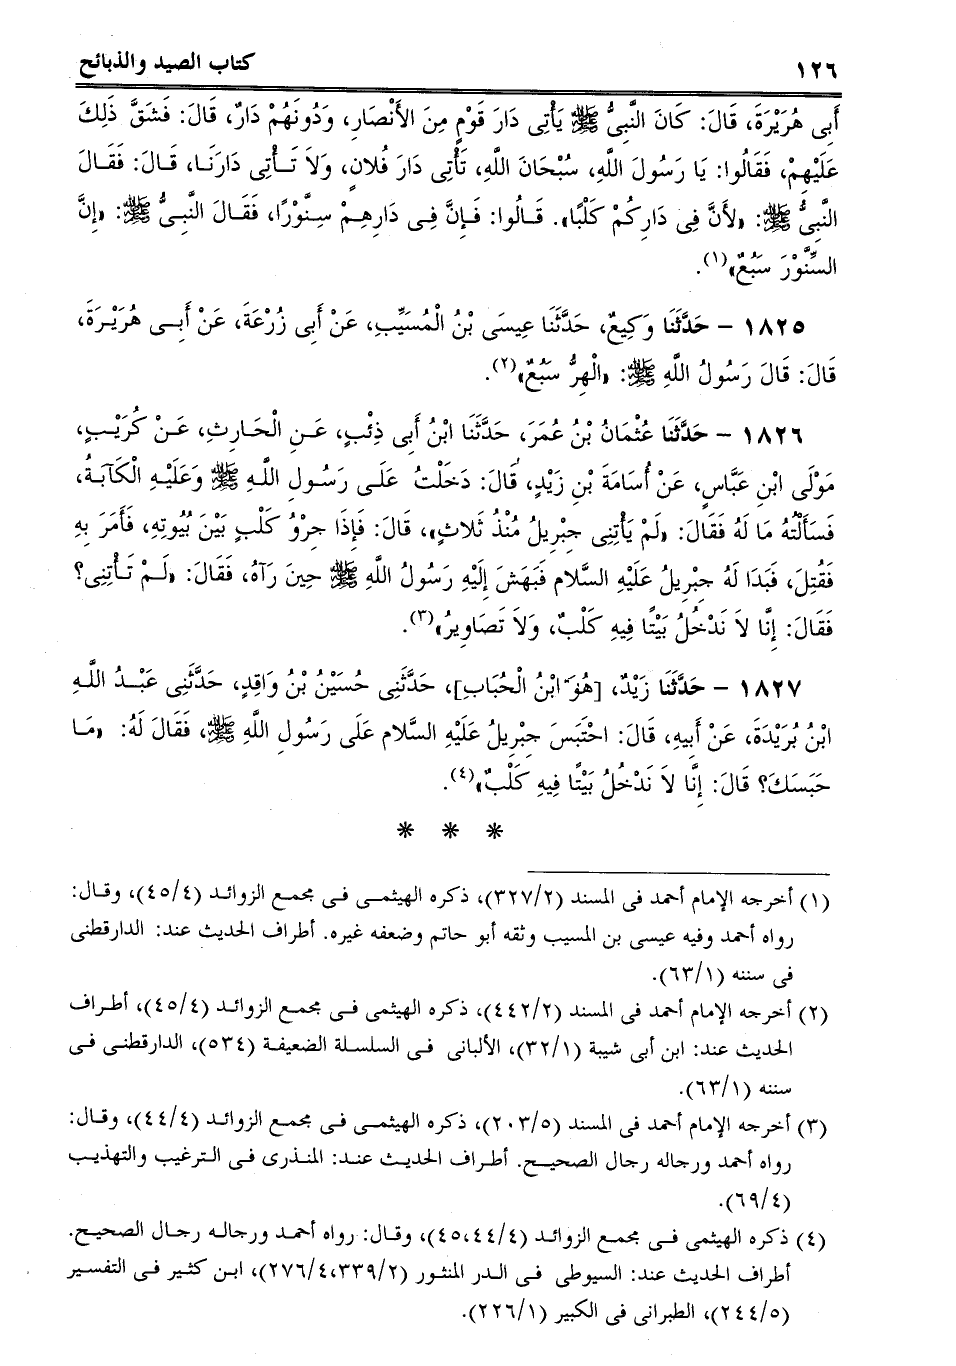 ١٢٦ كتاب الصيد والذبائح
أَبِى هُرَيْرَةَ، قَالَ: كَانَ النَّبِىُّ ﷺ يَأْتِى دَارَ قَوْمٍ مِنَ الأَنْصَارِ، وَدُونَهُمْ دَارٌ، قَالَ: فَشَقَّ ذَلِكَ
عَلَيْهِمْ، فَقَالُوا: يَا رَسُولَ اللَّهِ، سُبْحَانَ اللَّهِ، تَأْتِى دَارَ فُلانٍ، وَلاَ تَأْتِى دَارَنَا، قَالَ: فَقَالَ
النَّبِىُّ ﷺ: «لأَنَّ فِى دَارِكُمْ كَلْبًا». قَالُوا: فَإِنَّ فِى دَارِهِمْ سِنَّوْرًا، فَقَالَ النَّبِىُّ ﷺ: «إِنَّ
السِّنَّوْرَ سَبُعٌ»(١).
١٨٢٥ – حَدَّثَنَا وَكِيعٌ، حَدَّثَنَا عِيسَى بْنُ الْمُسَيِّبِ، عَنْ أَبِى زُرْعَةَ، عَنْ أَبِى هُرَيْرَةَ،
قَالَ: قَالَ رَسُولُ اللَّهِ ﷺ: «الْهِرُّ سَبُعٌ»(٢).
١٨٢٦ – حَدَّثَنَا عُثْمَانُ بْنُ عُمَرَ، حَدَّثَنَا ابْنُ أَبِى ذِئْبٍ، عَنِ الْحَارِثِ، عَنْ كُرَيْبٍ،
مَوْلَى ابْنِ عَبَّاسٍ، عَنْ أُسَامَةَ بْنِ زَيْدٍ، قَالَ: دَخَلْتُ عَلَى رَسُولِ اللَّهِ ﷺ وَعَلَيْهِ الْكَآبَةُ،
فَسَأَلْتُهُ مَا لَهُ فَقَالَ: «لَمْ يَأْتِنِى جِبْرِيلُ مُنْذُ ثَلاثٍ»، قَالَ: فَإِذَا جِرْوُ كَلْبٍ بَيْنَ بُيُوتِهِ، فَأَمَرَ بِهِ
فَقُتِلَ، فَبَدَا لَهُ جِبْرِيلُ عَلَيْهِ السَّلام فَبَهَشَ إِلَيْهِ رَسُولُ اللَّهِ ﷺ حِينَ رَآهُ، فَقَالَ: «لَمْ تَأْتِنِى؟
فَقَالَ: إِنَّا لاَ نَدْخُلُ بَيْتًا فِيهِ كَلْبٌ، وَلاَ تَصَاوِيرُ»(٣).
١٨٢٧ – حَدَّثَنَا زَيْدٌ، [هُوَ ابْنُ الْحُبَابِ]، حَدَّثَنِى حُسَيْنُ بْنُ وَاقِدٍ، حَدَّثَنِى عَبْدُ اللَّهِ
ابْنُ بُرَيْدَةَ، عَنْ أَبِيهِ، قَالَ: احْتَبَسَ جِبْرِيلُ عَلَيْهِ السَّلام عَلَى رَسُولِ اللَّهِ ﷺ، فَقَالَ لَهُ: «مَا
حَبَسَكَ؟ قَالَ: إِنَّا لاَ نَدْخُلُ بَيْتًا فِيهِ كَلْبٌ»(٤).
* * *
(١) أخرجه الإمام أحمد فى المسند (٣٢٧/٢)، ذكره الهيثمى فى مجمع الزوائد (٤٥/٤)، وقال:
رواه أحمد وفيه عيسى بن المسيب وثقه أبو حاتم وضعفه غيره. أطراف الحديث عند: الدارقطنى
فى سننه (٦٣/١).
(٢) أخرجه الإمام أحمد فى المسند (٤٤٢/٢)، ذكره الهيثمى فى مجمع الزوائد (٤٥/٤)، أطراف
الحديث عند: ابن أبى شيبة (٣٢/١)، الألبانى فى السلسلة الضعيفة (٥٣٤)، الدارقطنى فى
سننه (٦٣/١).
(٣) أخرجه الإمام أحمد فى المسند (٢٠٣/٥)، ذكره الهيثمى فى مجمع الزوائد (٤٤/٤)، وقال:
رواه أحمد ورجاله رجال الصحيح. أطراف الحديث عند: المنذرى فى الترغيب والتهذيب
(٦٩/٤).
(٤) ذكره الهيثمى فى مجمع الزوائد (٤٥،٤٤/٤)، وقال: رواه أحمد ورجاله رجال الصحيح.
أطراف الحديث عند: السيوطى فى الدر المنثور (٢٧٦/٤،٣٣٩/٢)، ابن كثير فى التفسير
(٢٤٤/٥)، الطبرانى فى الكبير (٢٢٦/١).